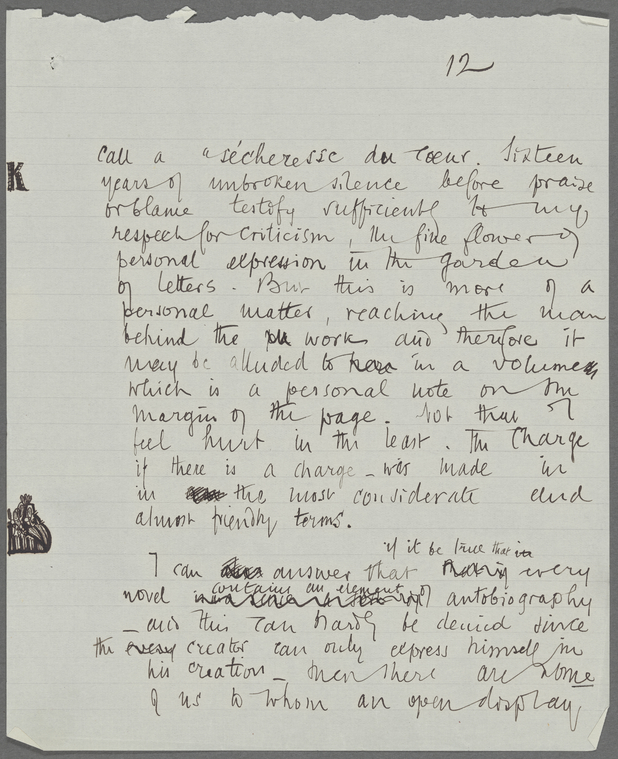 12
K
call a "sécheresse du cœur. Sixteen
years of unbroken silence before praise
or blame testify sufficiently to my
respect for criticism, the fine flower of
personal expression in the garden
of letters. But this is more of a
personal matter, reaching the man
behind the work and therefore it
may be alluded to here in a volume
which is a personal note on the
margin of the page. Not that I
feel hurt in the least. The charge
if there is a charge – was made in
in the most considerate and
almost friendly terms.
if it be true that in
I can answer that every
contains an element of
novel autobiography
– and this can hardly be denied since
the every creator can only express himself in
his creation – then there are some
of us to whom an open display